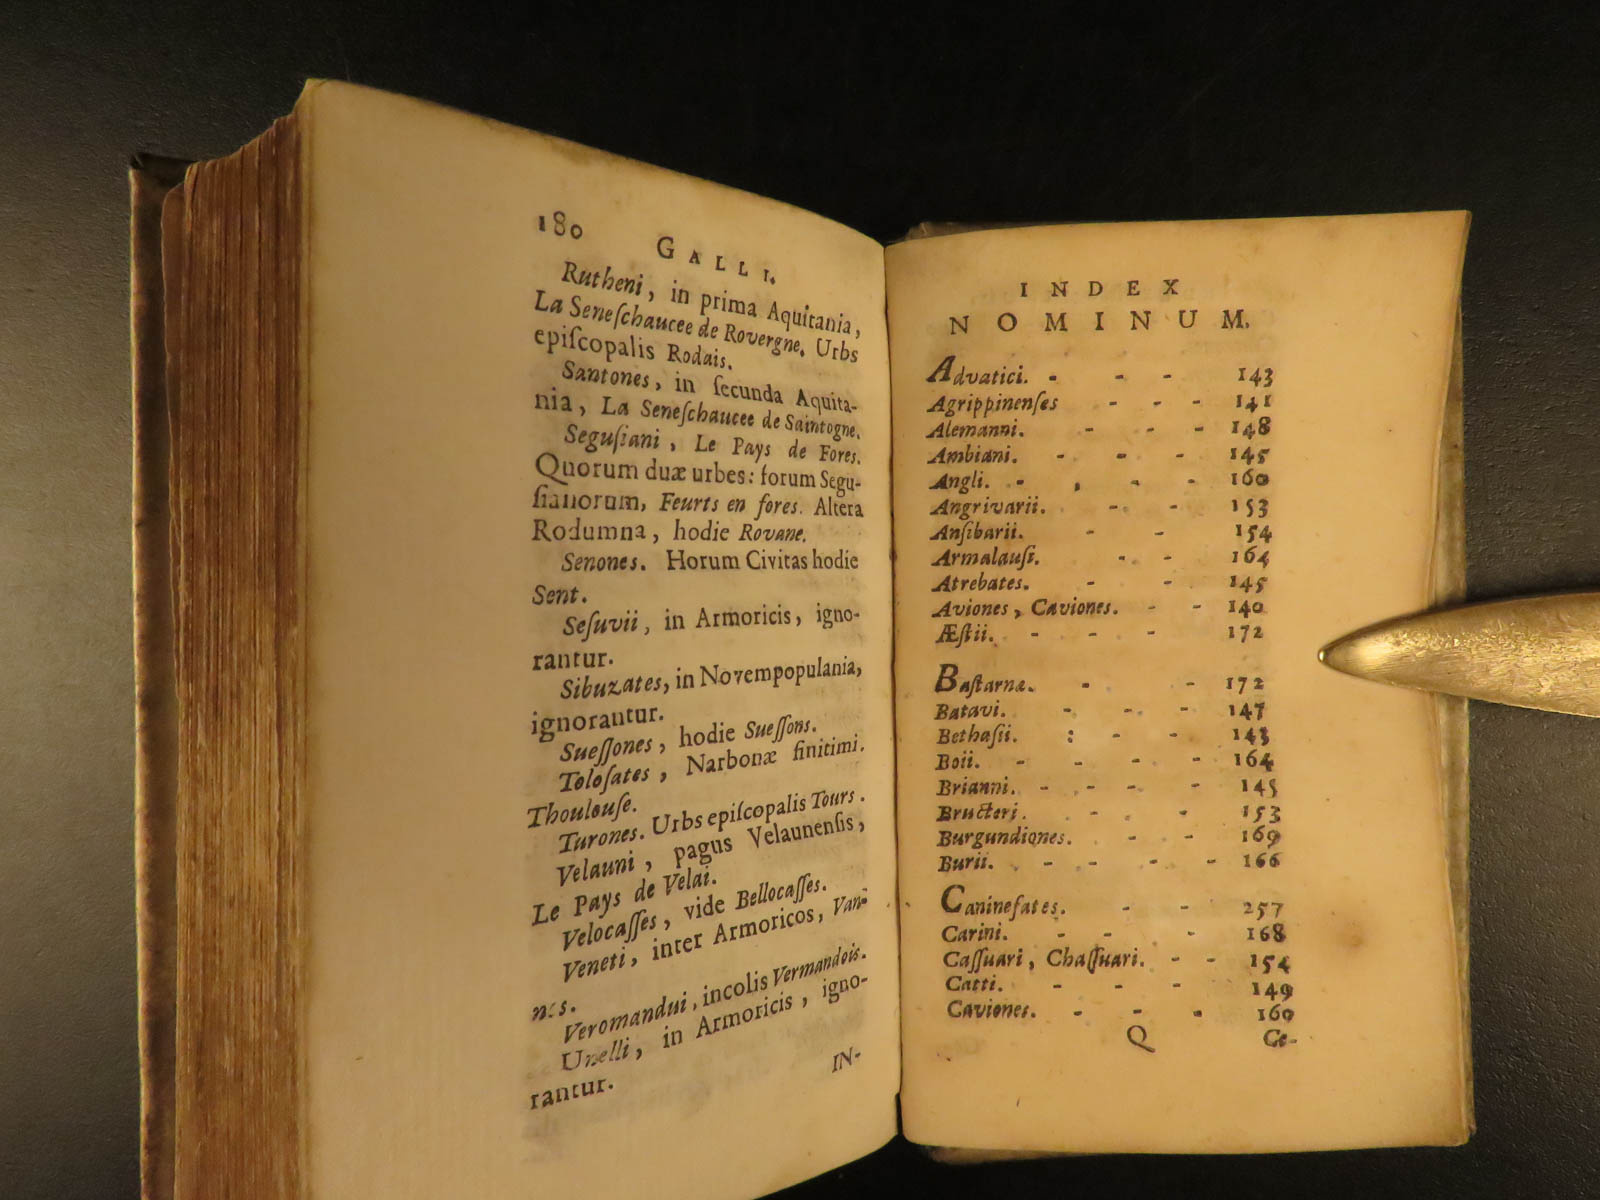 180
GALLI.
Rutheni, in prima Aquitania,
La Seneſchaucee de Rovergne. Urbs
epiſcopalis Rodais.
Santones, in ſecunda Aquita-
nia, La Seneſchaucee de Saintogne.
Seguſiani, Le Pays de Fores.
Quorum duæ urbes: forum Segu-
ſianorum, Feurts en fores. Altera
Rodumna, hodie Rovane.
Senones. Horum Civitas hodie
Sent.
Seſuvii, in Armoricis, igno-
rantur.
Sibuzates, in Novempopulania,
ignorantur.
Sueſſones, hodie Sueſſons.
Toloſates, Narbonæ finitimi.
Thoulouſe.
Turones. Urbs epiſcopalis Tours.
Velauni, pagus Velaunenſis,
Le Pays de Velai.
Velocaſſes, vide Bellocaſſes.
Veneti, inter Armoricos, Van-
nes.
Veromandui, incolis Vermandois.
Unelli, in Armoricis, igno-
rantur.
IN-
INDEX
NOMINUM.
Advatici. - - - 143
Agrippinenſes - - - 141
Alemanni. - - - 148
Ambiani. - - - 145
Angli. - , - - 160
Angrivarii. - - 153
Anſibarii. - - 154
Armalauſi. - - 164
Atrebates. - - 145
Aviones, Caviones. - - 140
Æſtii. - - - 172
Baſtarnæ. - - 172
Batavi. - - - 147
Bethaſii. : - - 143
Boii. - - - - 164
Brianni. - - - - 145
Bructeri. - - - 153
Burgundiones. - - 169
Burii. - - - - 166
Caninefates. - - 257
Carini. - - - 168
Caſſuari, Chaſſuari. - - 154
Catti. - - - 149
Caviones. - - - 160
Q Ce-